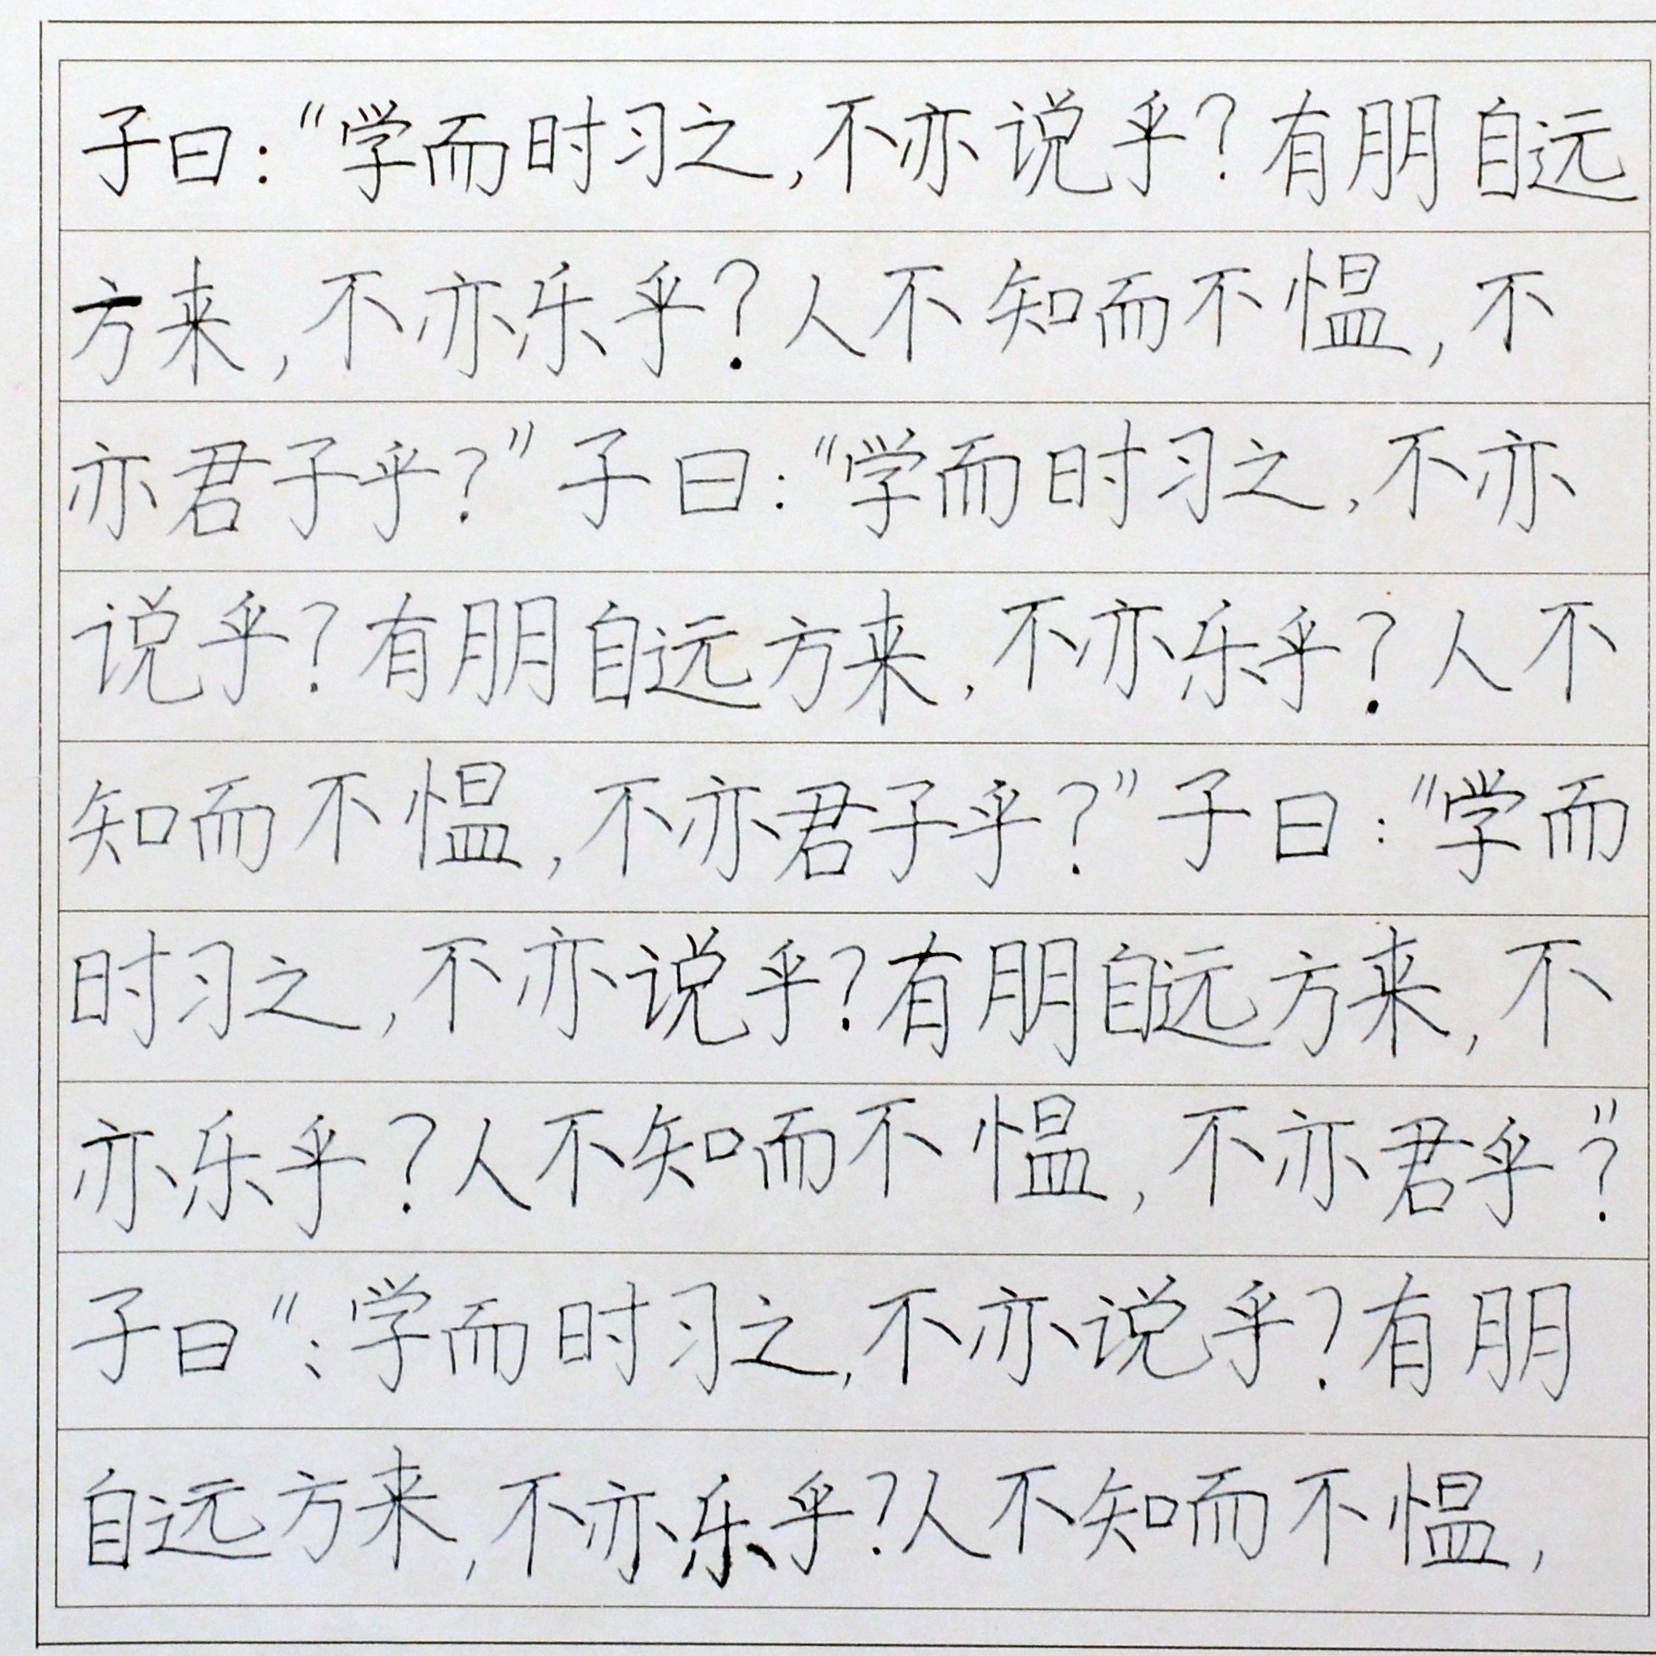 子曰：“学而时习之，不亦说乎？有朋自远
方来，不亦乐乎？人不知而不愠，不
亦君子乎？”子曰：“学而时习之，不亦
说乎？有朋自远方来，不亦乐乎？人不
知而不愠，不亦君子乎？”子曰：“学而
时习之，不亦说乎？有朋自远方来，不
亦乐乎？人不知而不愠，不亦君乎？”
子曰“：学而时习之，不亦说乎？有朋
自远方来，不亦乐乎？人不知而不愠，